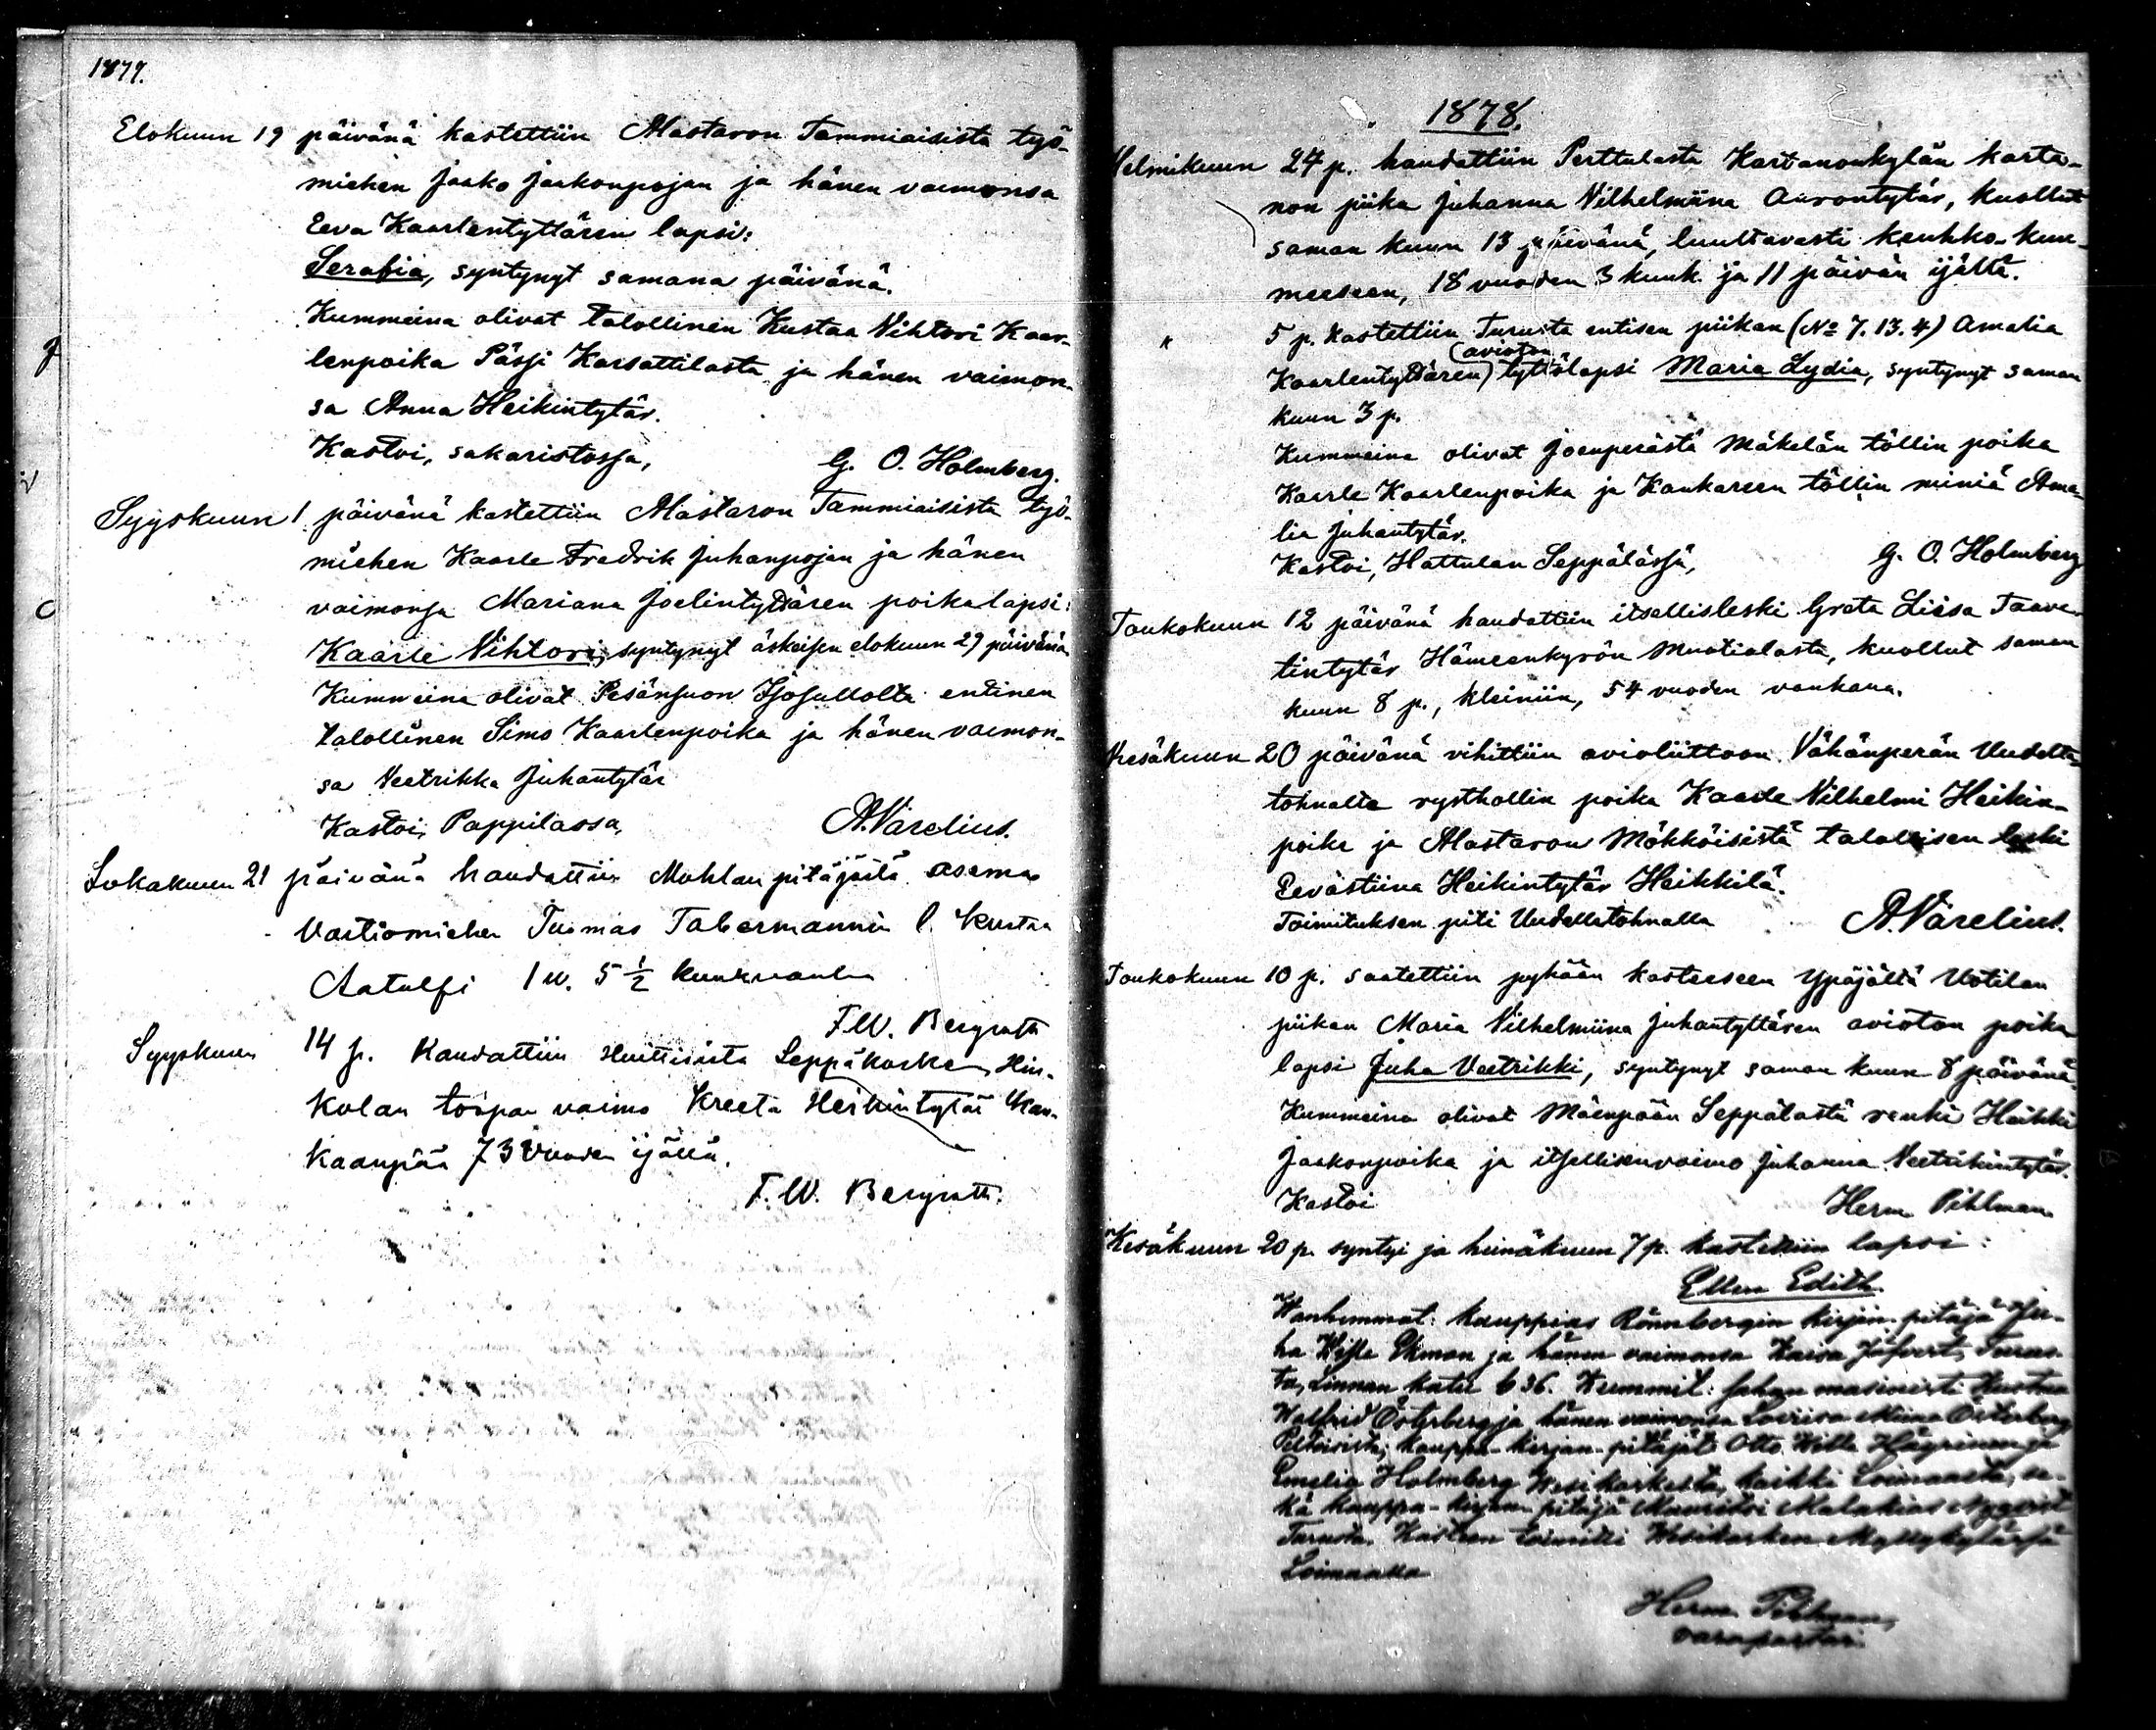 1877.
Elokuun 19 päivänä kastettiin Alastaron Tammiaisista työ-
miehen Jaako Jaakonpojan ja hänen vaimonsa
Eeva Kaarlentyttären lapsi:
Serafia, syntynyt samana päivänä.
Kummeina olivat talollinen Kustaa Vihtori Kaar-
lenpoika Pässi Karsattilasta ja hänen vaimon-
sa Anna Heikintytär.
Kastoi, sakaristossa,
G. O. Holmberg.
Syyskuun 1 päivänä kastettiin Alastaron Tammiaisista työ-
miehen Kaarle Fredrik Juhanpojan ja hänen
vaimonsa Mariana Joelintyttären poikalapsi:
Kaarle Vihtori, syntynyt äskeisen elokuun 29 päivänä
Kummeina olivat Pesänsuon Isosillolta entinen
talollinen Simo Kaarlenpoika ja hänen vaimon-
sa Veetrikka Juhantytär
Kastoi, Pappilassa,
A. Varelius.
Lokakuun 21 päivänä haudattiin Mohlan pitäjästä asema
Vartiomiehen Tuomas Tabermannin l. Kustaa
Aatolfi 1 w. 5 ½ kuuk vanha
F. W. Bergroth
Syyskuun 14 p. Haudattiin Huittisista Leppäkoske Hin-
kolan torpan vaimo Kreeta Heikintytär Kan-
kaanpää 73 Vuoden ijällä.
F. W. Bergroth.
1878.
Helmikuun 24 p. haudattiin Perttulasta Kartanonkylän karta-
non piika Juhanna Vilhelmiina Aarontytär, kuollut
saman kuun 13 päivänä, luultavasti keuhko-kuu-
meeseen, 18 vuoden 3 kuuk. ja 11 päivän ijältä.
" 5 p. kastettiin Turusta entisen piikan (No 7. 13. 4) Amalia
(aviotoin
Kaarlentyttären) tyttölapsi Maria Lydia, syntynyt saman
kuun 3 p.
Kummeina olivat Joenperästä Mäkelän töllin poika
Kaarle Kaarlenpoika ja Kankareen töllin miniä Ama-
lia Juhantytär.
Kastoi, Hattulan Seppälässä,
G. O. Holmberg
Toukokuun 12 päivänä haudattiin itsellisleski Greta Liisa Taave-
tintytär Hämeenkyrön Muotialasta, kuollut saman
kuun 8 p., kleiniin, 54 vuoden vanhana.
Kesäkuun 20 päivänä vihittiin avioliittoon Vähänperän Uudelta-
tohnalta rusthollin poika Kaarle Vilhelmi Heikin-
poika ja Alastaron Mökköisistä talollisen leski
Eevastiina Heikintytär Heikkilä.
Toimituksen piti Uudellatohnalla
A. Varelius.
Toukokuun 10 p. saatettiin pyhään kasteeseen Ypäjältä Uotilan
piikan Maria Vilhelmiina Juhantyttären avioton poika
lapsi Juha Veetrikki, syntynyt saman kuun 8 päivänä.
Kummeina olivat Mäenpään Seppälästä renki Heikki
Jaakonpoika ja itsellisenvaimo Juhanna Veetrikintytär.
Kastoi
Herm Pihlman
Kesäkuun 20 p. syntyi ja heinäkuun 7 p. kastettiin lapsi:
Ellen Edith.
Wanhemmat: kauppias Rönnbergin kirjan-pitäjä Ju-
ha Wille Ekman ja hänen vaimonsa Kaisa Turus-
ta, Linnan katu 636. Kummit: Sahan masinisti Kustaa
Walfrid Österberg ja hänen vaimonsa Loviisa Miina Österberg
Peltoisista, kauppa-kirjan-pitäjät Otto Wille Hägrinen ja
Emelia Holmberg Wesikoskesta, kaikki Loimaasta, se-
kä kauppa-kirjan pitäjä Mauritsi Malakias Nyqvist
Turusta. Kasteen toimitti Wesikosken Myllykylässä
Loimaalla
Herm Pihlman,
varapastori.